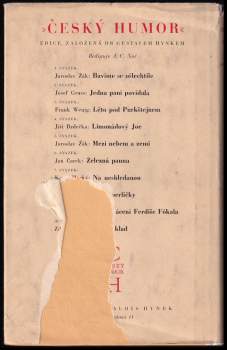 »ČESKÝ HUMOR«
EDICE, ZALOŽENÁ DR GUSTAVEM HYNKEM
Rediguje A. C. Nor
1. SVAZEK:
Jaroslav Žák: Bavíme se ušlechtile
2. SVAZEK:
Josef Gruss: Jedna paní povídala
3. SVAZEK:
Frank Wenig: Léto pod Parkštejnem
4. SVAZEK:
Jiří Brdečka: Limonádový Joe
5. SVAZEK:
Jaroslav Žák: Mezi nebem a zemí
6. SVAZEK:
Jan Carek: Zelenná panna
7. SVAZEK:
Na neshledanou
ácení Ferdiše Fókala
klad
C
H
HYNEK